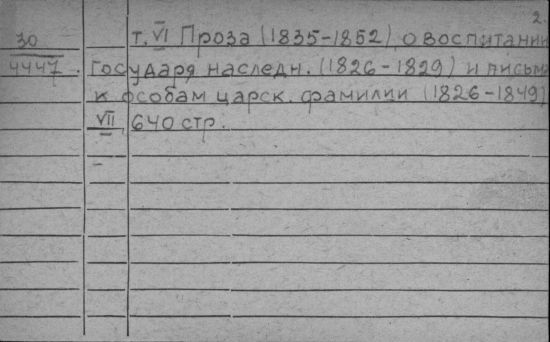 2.
30 т. VI Проза (1835-1852) о воспитании
4447. Государя наследн. (1826-1829) и письма
к особам царск. фамилии (1826-1849)
VII 640 стр.